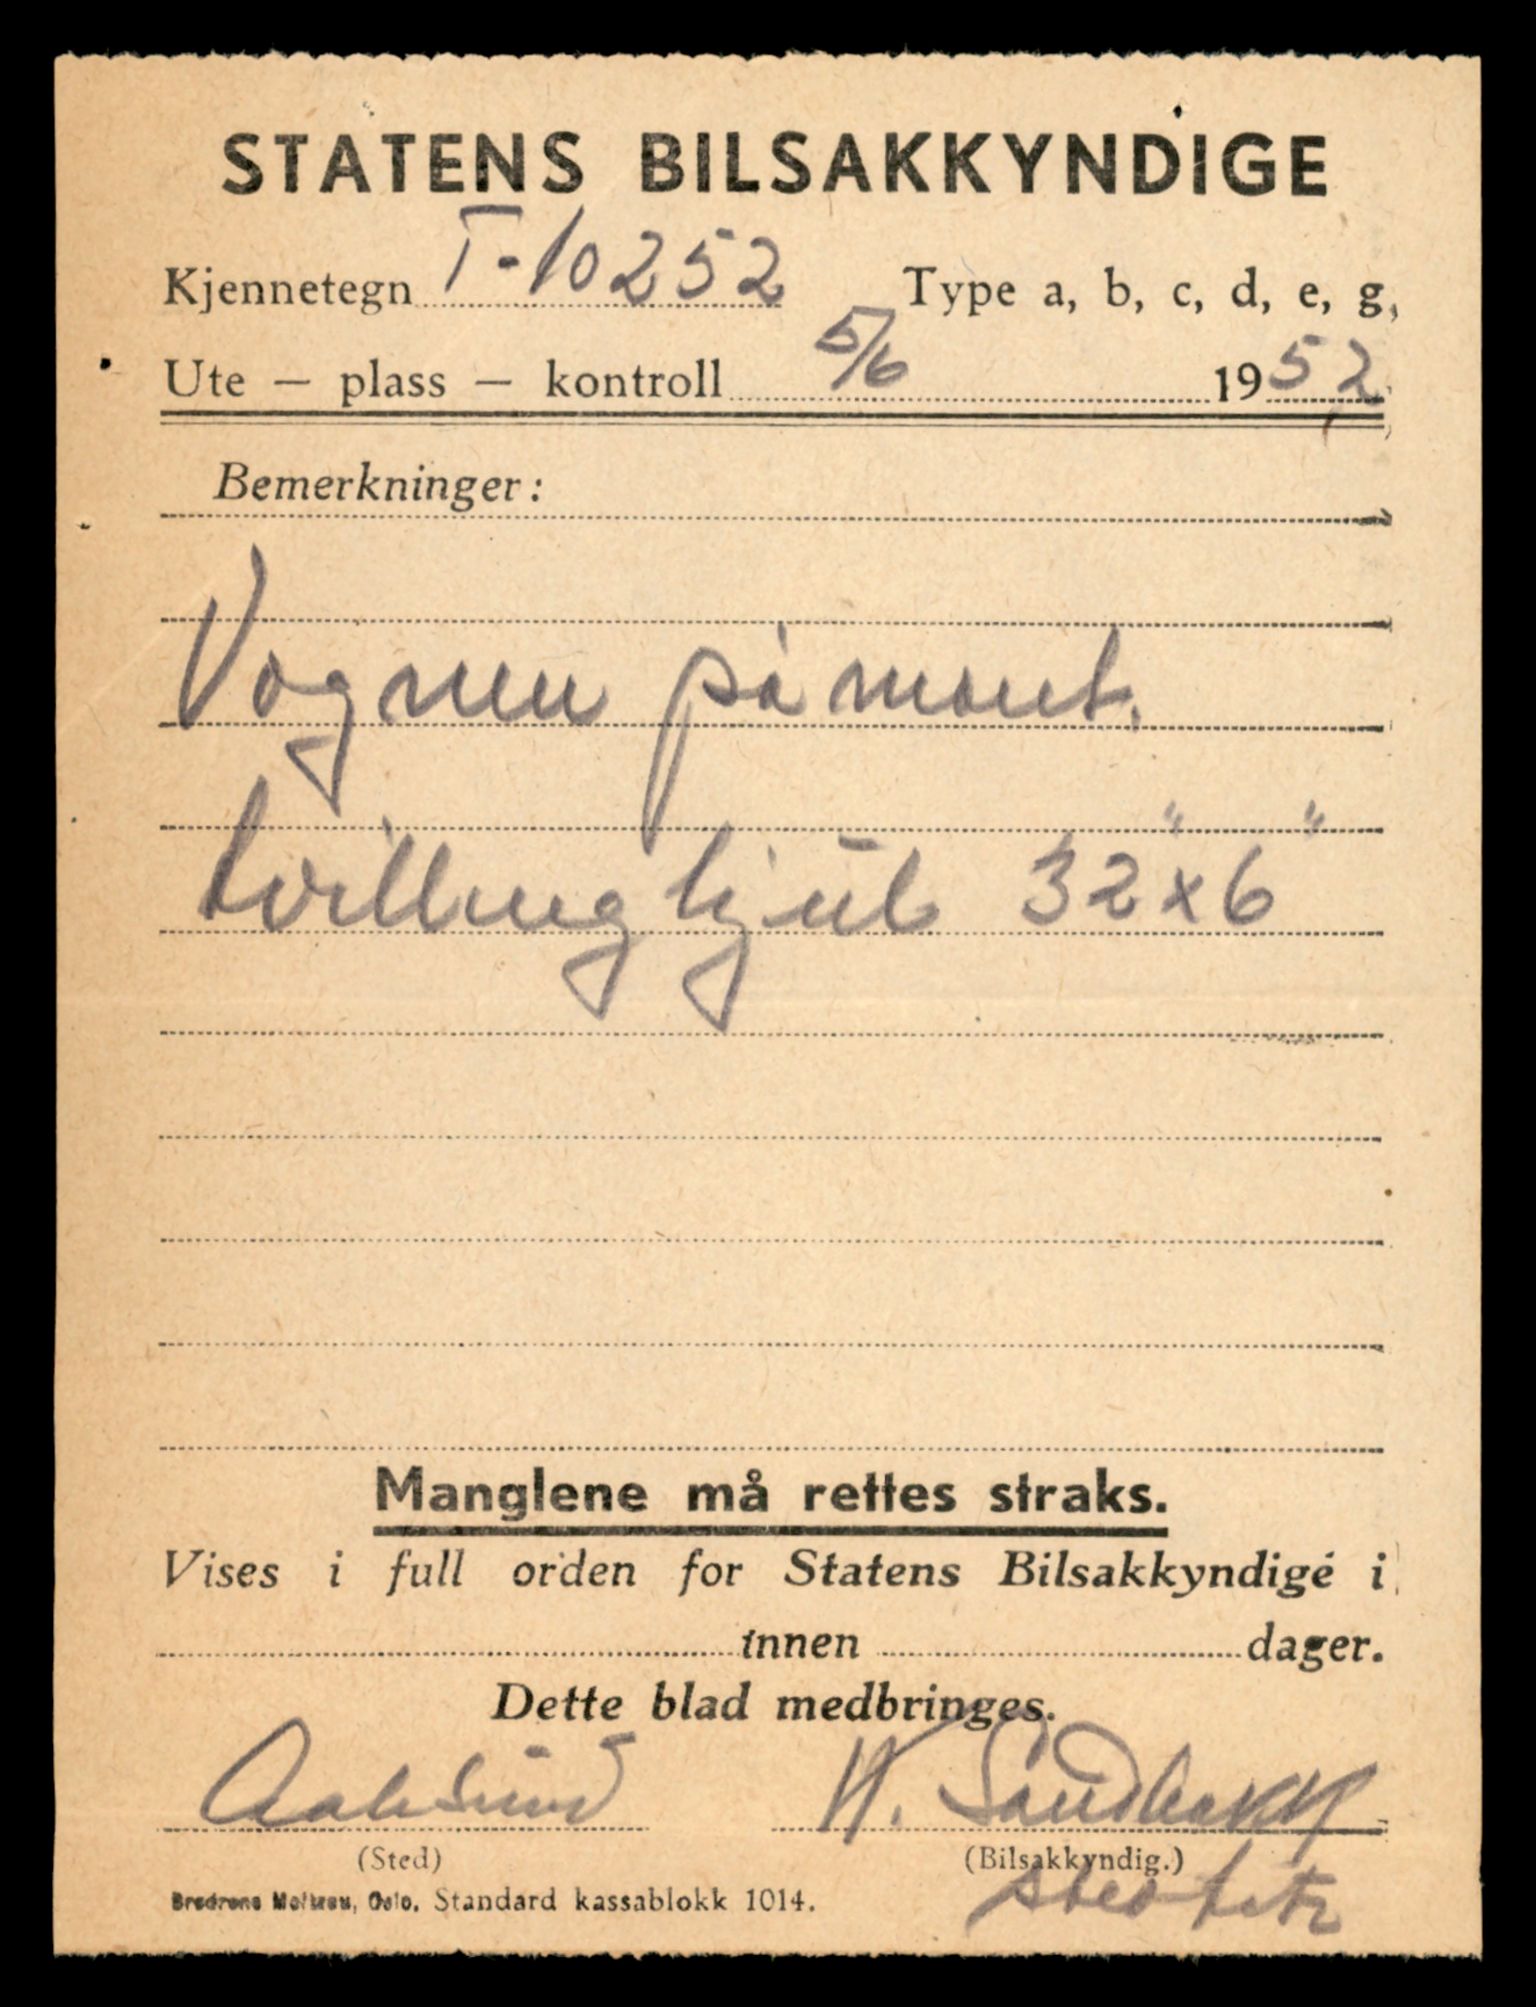 STATENS BILSAKKYNDIGE
Kjennetegn T-10252 Type a, b, c, d, e, g,
Ute — plass — kontroll 5/6 1952
Bemerkninger:
Vognen påmont.
tvillinghjul 32"x6"
Manglene må rettes straks.
Vises i full orden for Statens Bilsakkyndige i
innen dager.
Dette blad medbringes.
Aalesund W. Sandbakk
(Sted) (Bilsakkyndig.)
Brødrene Oslo. Standard kassablokk 1014.